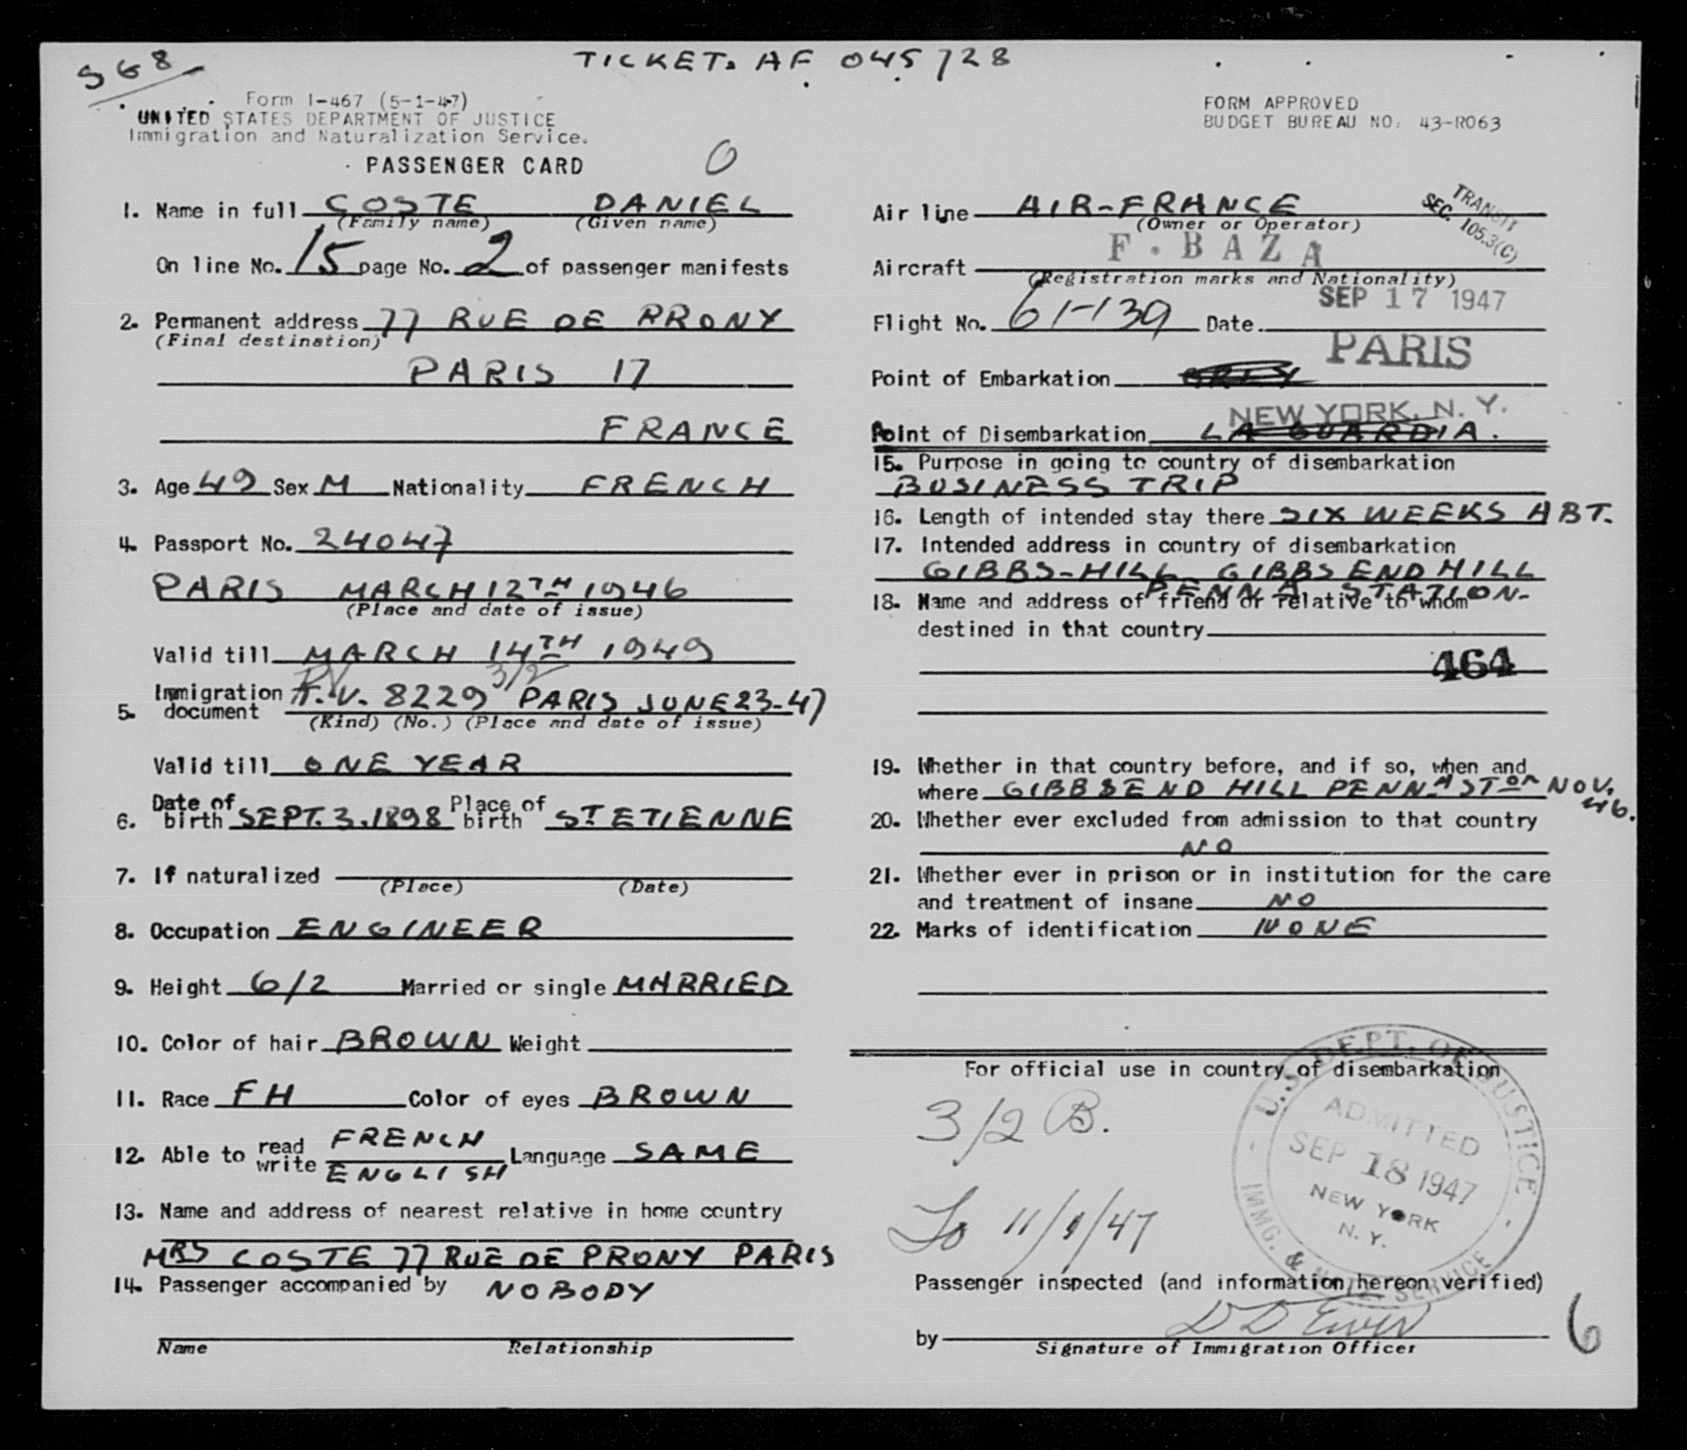 568
TICKET. AF 045728
Form I-467 (5-1-47)
UNITED STATES DEPARTMENT OF JUSTICE
Immigration and Naturalization Service.
PASSENGER CARD
0
FORM APPROVED
BUDGET BUREAU NO. 43-R063
1. Name in full COSTE DANIEL
(Family name) (Given name)
On line No. 15 page No. 2 of passenger manifests
2. Permanent address 77 RUE DE PRONY
(Final destination)
PARIS 17
FRANCE
3. Age 49 Sex M Nationality FRENCH
4. Passport No. 24047
PARIS MARCH 12TH 1946
(Place and date of issue)
Valid till MARCH 14TH 1949
3/2
5. Immigration document T.V. 8229 PARIS JUNE 23-47
(Kind) (No.) (Place and date of issue)
Valid till ONE YEAR
6. Date of birth SEPT. 3. 1898 Place of birth ST ETIENNE
7. If naturalized
(Place) (Date)
8. Occupation ENGINEER
9. Height 6/2 Married or single MARRIED
10. Color of hair BROWN Weight
11. Race FH Color of eyes BROWN
12. Able to read FRENCH
write ENGLISH Language SAME
13. Name and address of nearest relative in home country
MRS COSTE 77 RUE DE PRONY PARIS
14. Passenger accompanied by NOBODY
Name Relationship
Air line AIR-FRANCE
(Owner or Operator)
TRANSIT
SEC. 105.3(C)
Aircraft F. BAZA
(Registration marks and Nationality)
Flight No. 61-139 Date SEP 17 1947
Point of Embarkation PARIS
NEW YORK, N. Y.
Point of Disembarkation LA GUARDIA.
15. Purpose in going to country of disembarkation
BUSINESS TRIP
16. Length of intended stay there SIX WEEKS ABT.
17. Intended address in country of disembarkation
GIBBS-HILL GIBBS END HILL
PENNA STATION-
18. Name and address of friend or relative to whom
destined in that country
464
19. Whether in that country before, and if so, when and
where GIBBS END HILL PENNA STON NOV. 46.
20. Whether ever excluded from admission to that country
NO
21. Whether ever in prison or in institution for the care
and treatment of insane NO
22. Marks of identification NONE
For official use in country of disembarkation
3/2 B.
To 11/1/47
U.S. DEPT. OF JUSTICE
ADMITTED
SEP 18 1947
NEW YORK
N. Y.
IMMG. & NATZ. SERVICE
Passenger inspected (and information hereon verified)
by
Signature of Immigration Officer
6